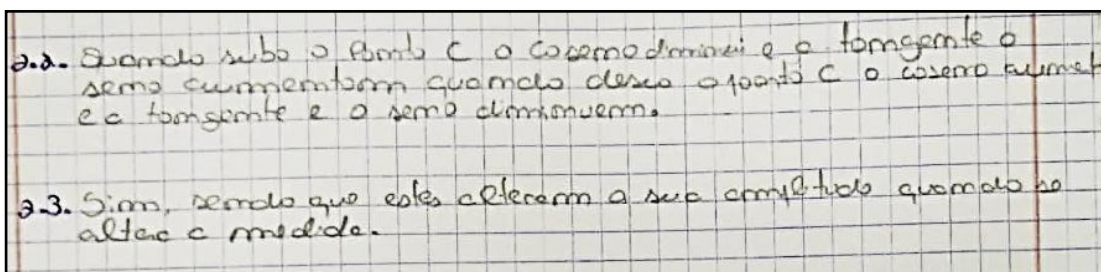 2.2. Quando subo o ponto C o coseno diminui e a tangente o
seno aumentam quando desco o ponto C o coseno aumet
e a tangente e o seno diminuem.
2.3. Sim, sendo que estes alteram a sua amplitude quando se
altera a medida.